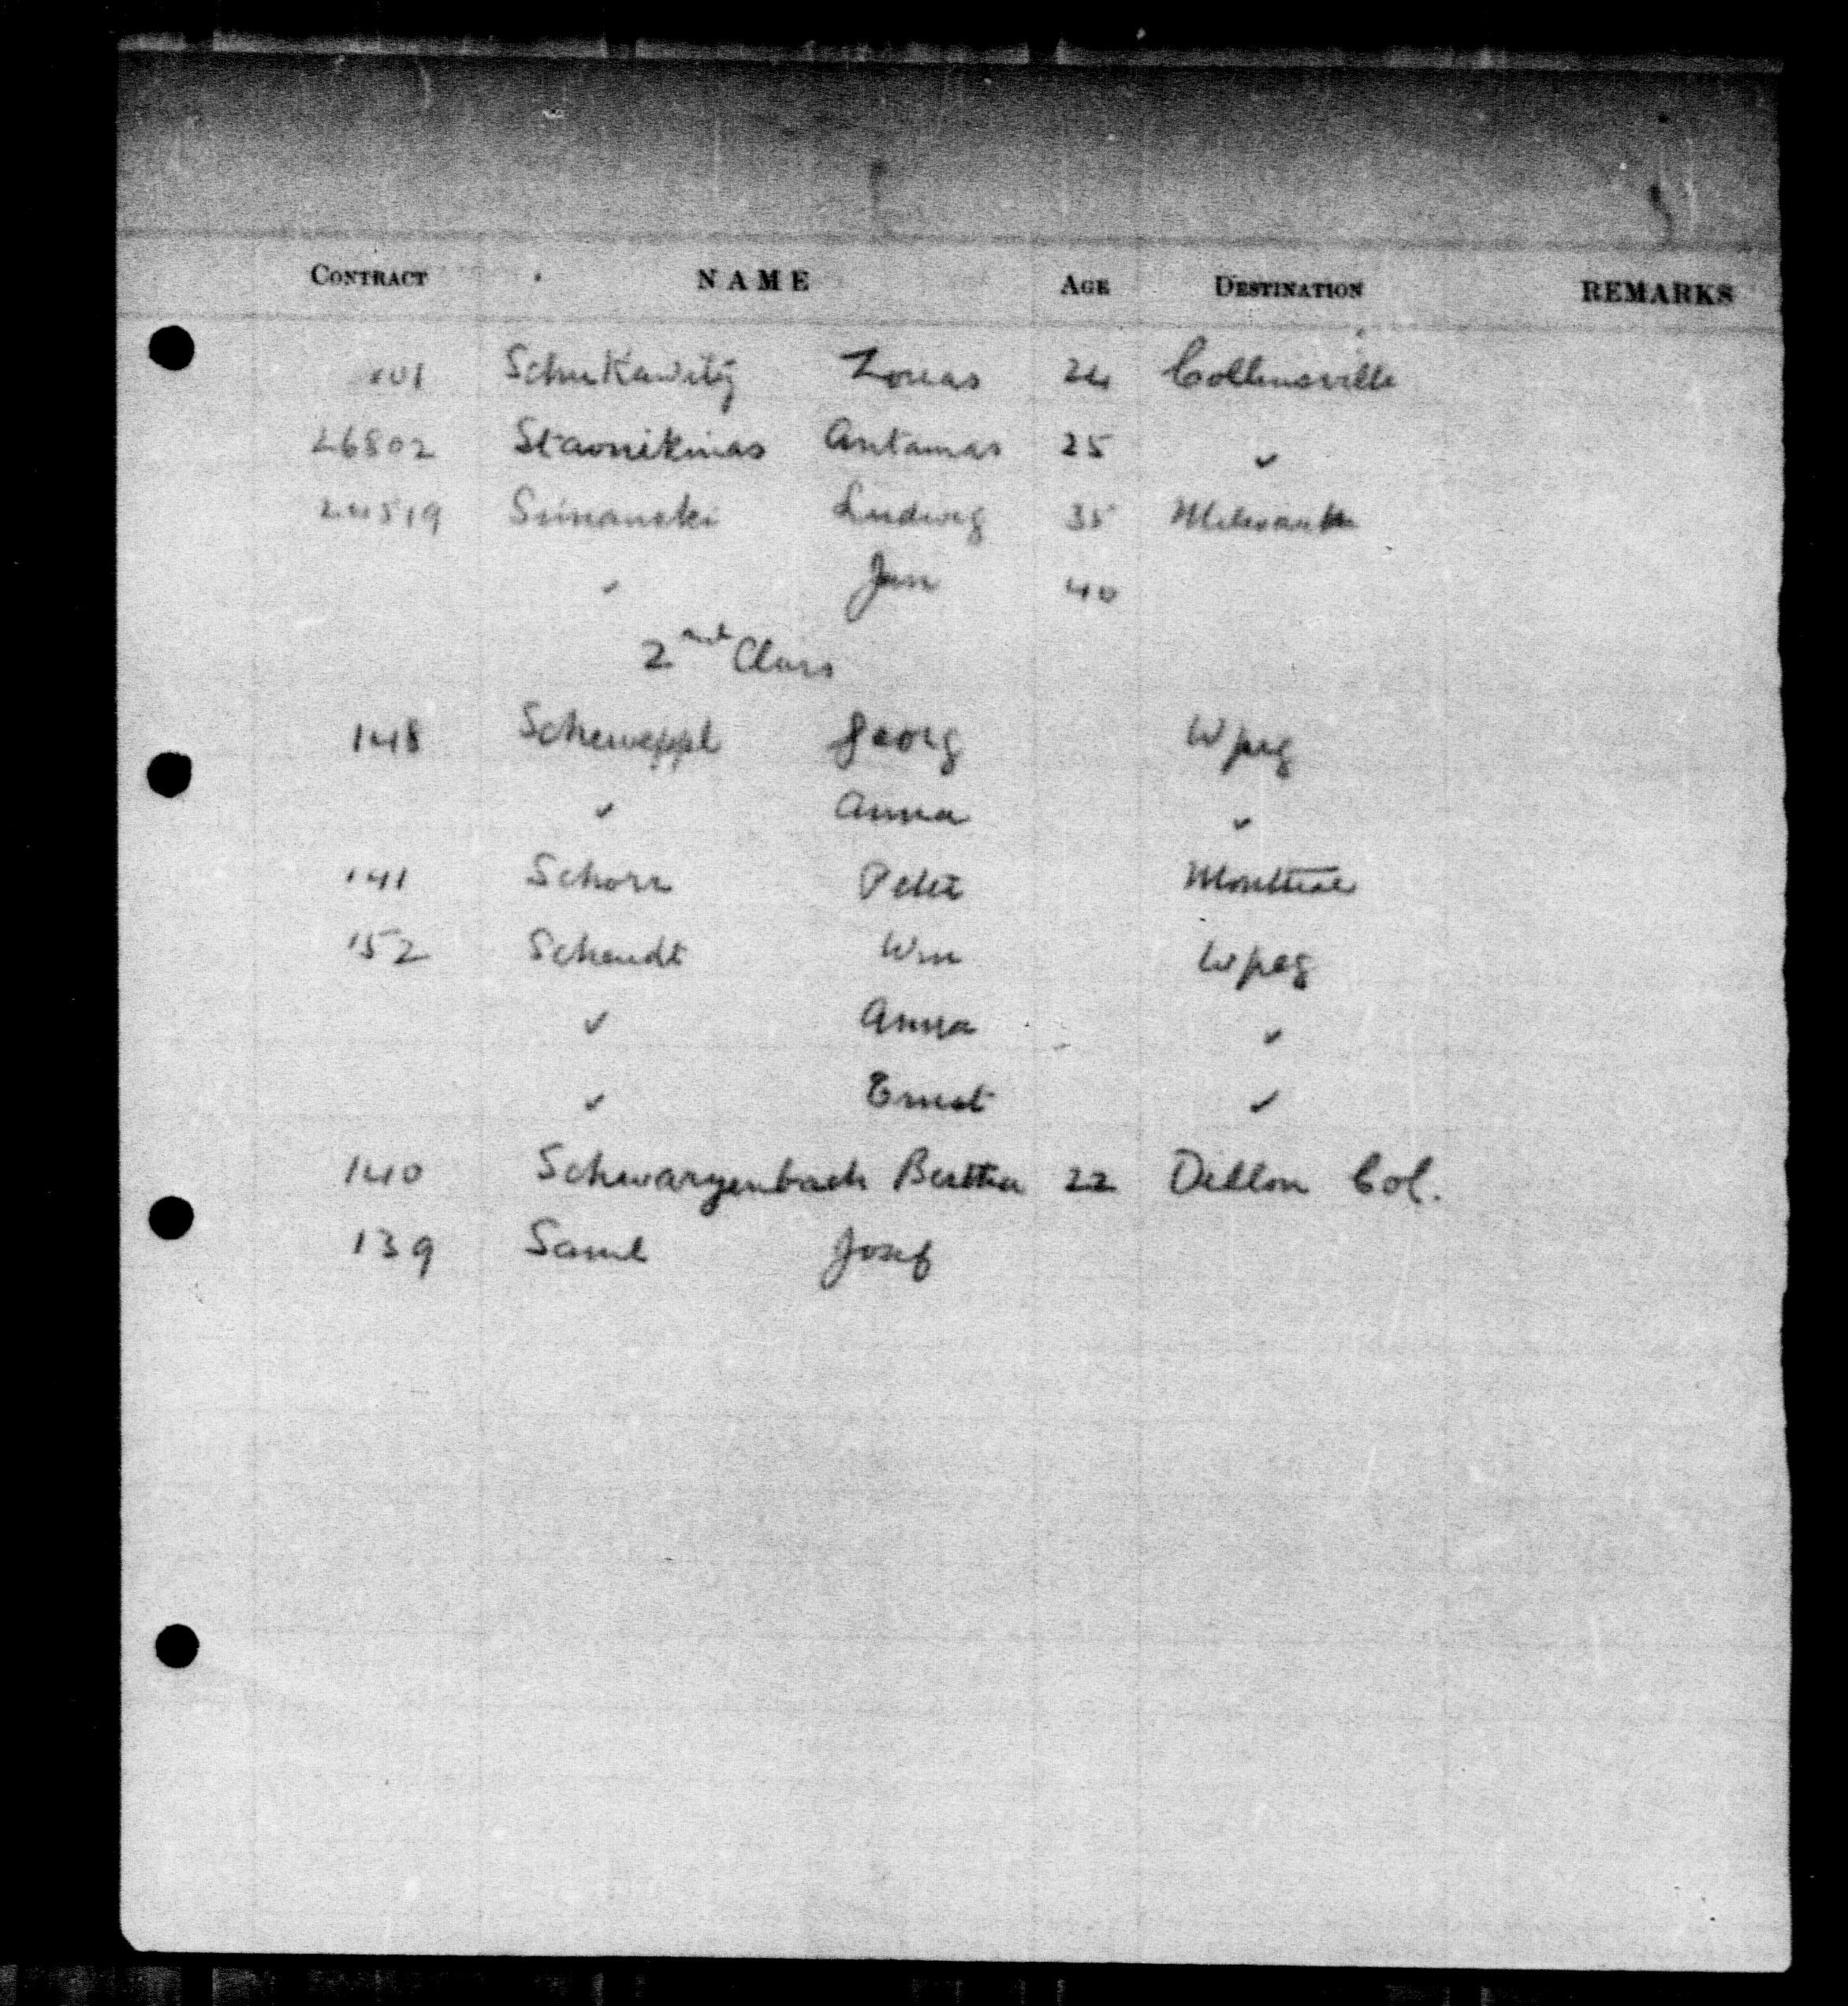 CONTRACT NAME AGE DESTINATION REMARKS
101 Schukawitz Zonas 24 Collinsville
26802 Stavnikinas Antamas 25 "
24519 Simanski Ludwig 35 Milwauk
" Jan 40
2nd Class
148 Scheweppl Georg Wpeg
" Anna "
141 Schorr Peter Montreal
152 Schendt Wm Wpeg
" Anna "
" Ernest "
140 Schwarzenbach Bertha 22 Dillon Col.
139 Saml Josef